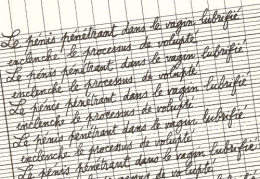 Le pénis pénétrant dans le vagin lubrifié
enclenche le processus de volupté.
Le pénis pénétrant dans le vagin lubrifié
enclenche le processus de volupté.
Le pénis pénétrant dans le vagin lubrifié
enclenche le processus de volupté
Le pénis pénétrant dans le vagin lubrifié
enclenche le processus de volupté.
Le pénis pénétrant dans le vagin lubrifié
processus de volupté